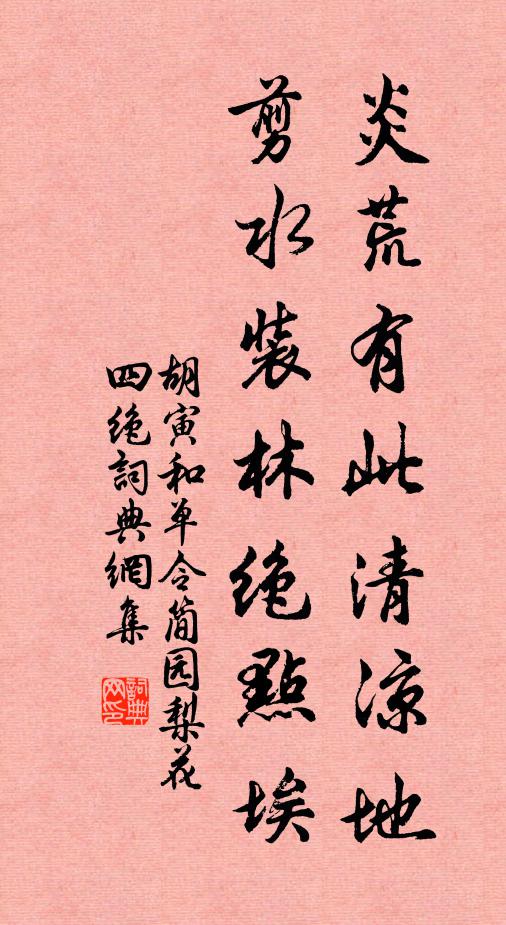 炎荒有此清凉地
剪水裝林絶點埃
胡寅和单令简园梨花
四绝詞典網集
詞典
网印